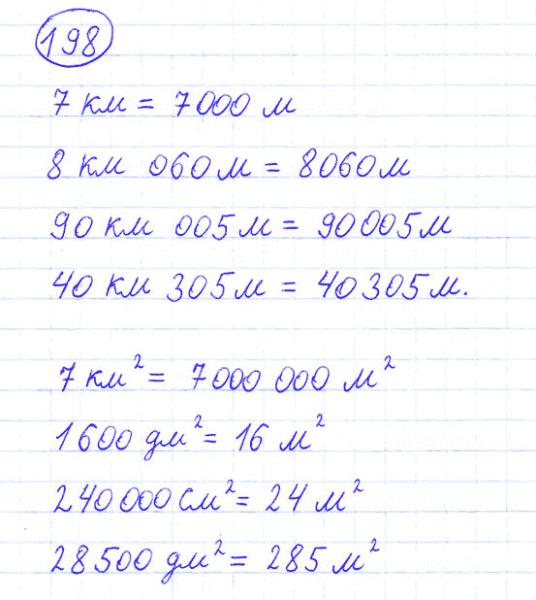 198
7 км = 7000 м
8 км 060 м = 8060 м
90 км 005 м = 90005 м
40 км 305 м = 40305 м.
7 км² = 7000 000 м²
1600 дм² = 16 м²
240 000 см² = 24 м²
28500 дм² = 285 м²